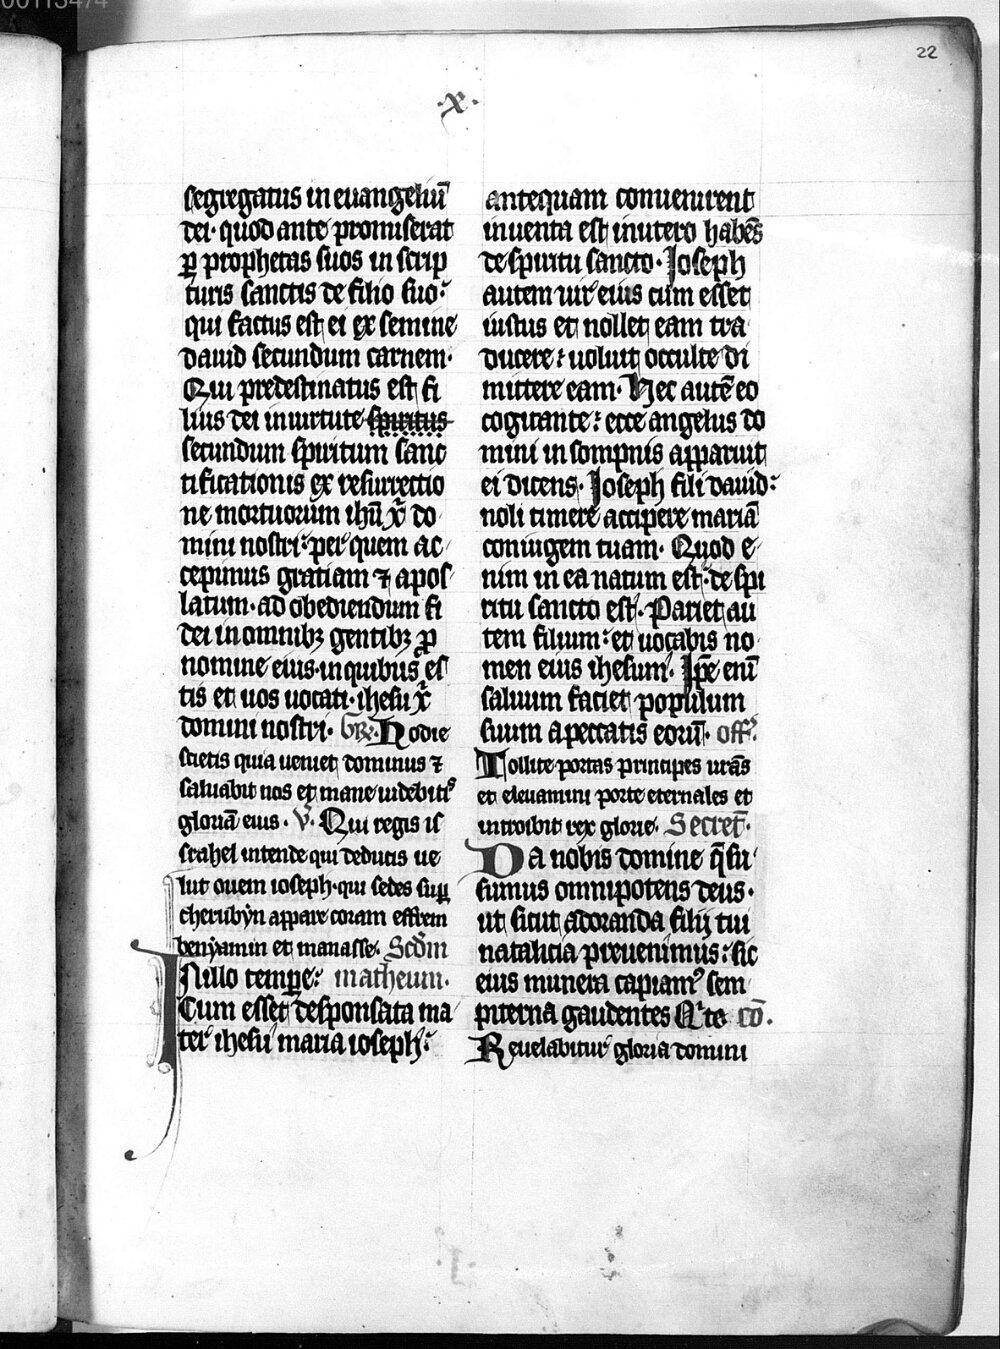 00113474
22
·x·
segregatus in euangeliū
dei· quod ante promiserat
ꝑ prophetas suos in scrip
turis sanctis de filio suo:
qui factus est ei ex semine
dauid secundum carnem·
Qui predestinatus est fi
lius dei in uirtute spiritus
secundum spiritum sanc
tificationis ex resurrectio
ne mortuorum ihū xp̄ do
mini nostri: per quem ac
cepimus gratiam ⁊ apos
latum· ad obediendum fi
dei in omnibꝫ gentibꝫ ꝓ
nomine eius· in quibus es
tis et uos uocati· ihesu xp̄
domini nostri· Gr̄· Hodie
scietis quia ueniet dominus ⁊
saluabit nos et mane uidebitis
gloriā eius· V̄· Qui regis is
srahel intende qui deducis ue
lut ouem ioseph· qui sedes suꝑ
cherubyn appare coram effrem
benyamin et manasse· Scd̄m
In illo tempe: matheum·
Cum esset desponsata ma
ter ihesu maria ioseph:
antequam conuenirent
inuenta est in utero habēs
de spiritu sancto· Ioseph
autem uir eius cum esset
iustus et nollet eam tra
ducere: uoluit occulte di
mittere eam· Hec autē eo
cogitante: ecce angelus do
mini in sompnis apparuit
ei dicens· Ioseph fili dauid:
noli timere accipere mariā
coniugem tuam· Quod e
nim in ea natum est· de spi
ritu sancto est· Pariet au
tem filium: et uocabis no
men eius ihesum· Ip̄e enī
saluum faciet populum
suum a peccatis eorū· off̄·
Tollite portas principes urās
et eleuamini porte eternales et
introibit rex glorie· Secret̄·
Da nobis domine q̄su
sumus omnipotens deus·
ut sicut adoranda filij tui
natalicia preuenimus: sic
eius munera capiam᷒ sem
piterna gaudentes Q̄ te cō·
Reuelabitur gloria domini